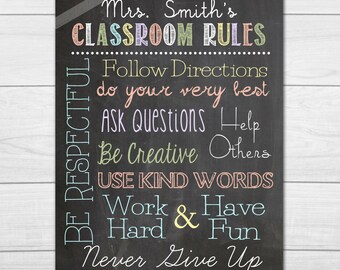 Mrs. Smith's
CLASSROOM RULES
BE RESPECTFUL
Follow Directions
do your very best
ASK QUESTIONS
Help
Others
Be Creative
USE KIND WORDS
Work
Hard
&
Have
Fun
Never Give Up